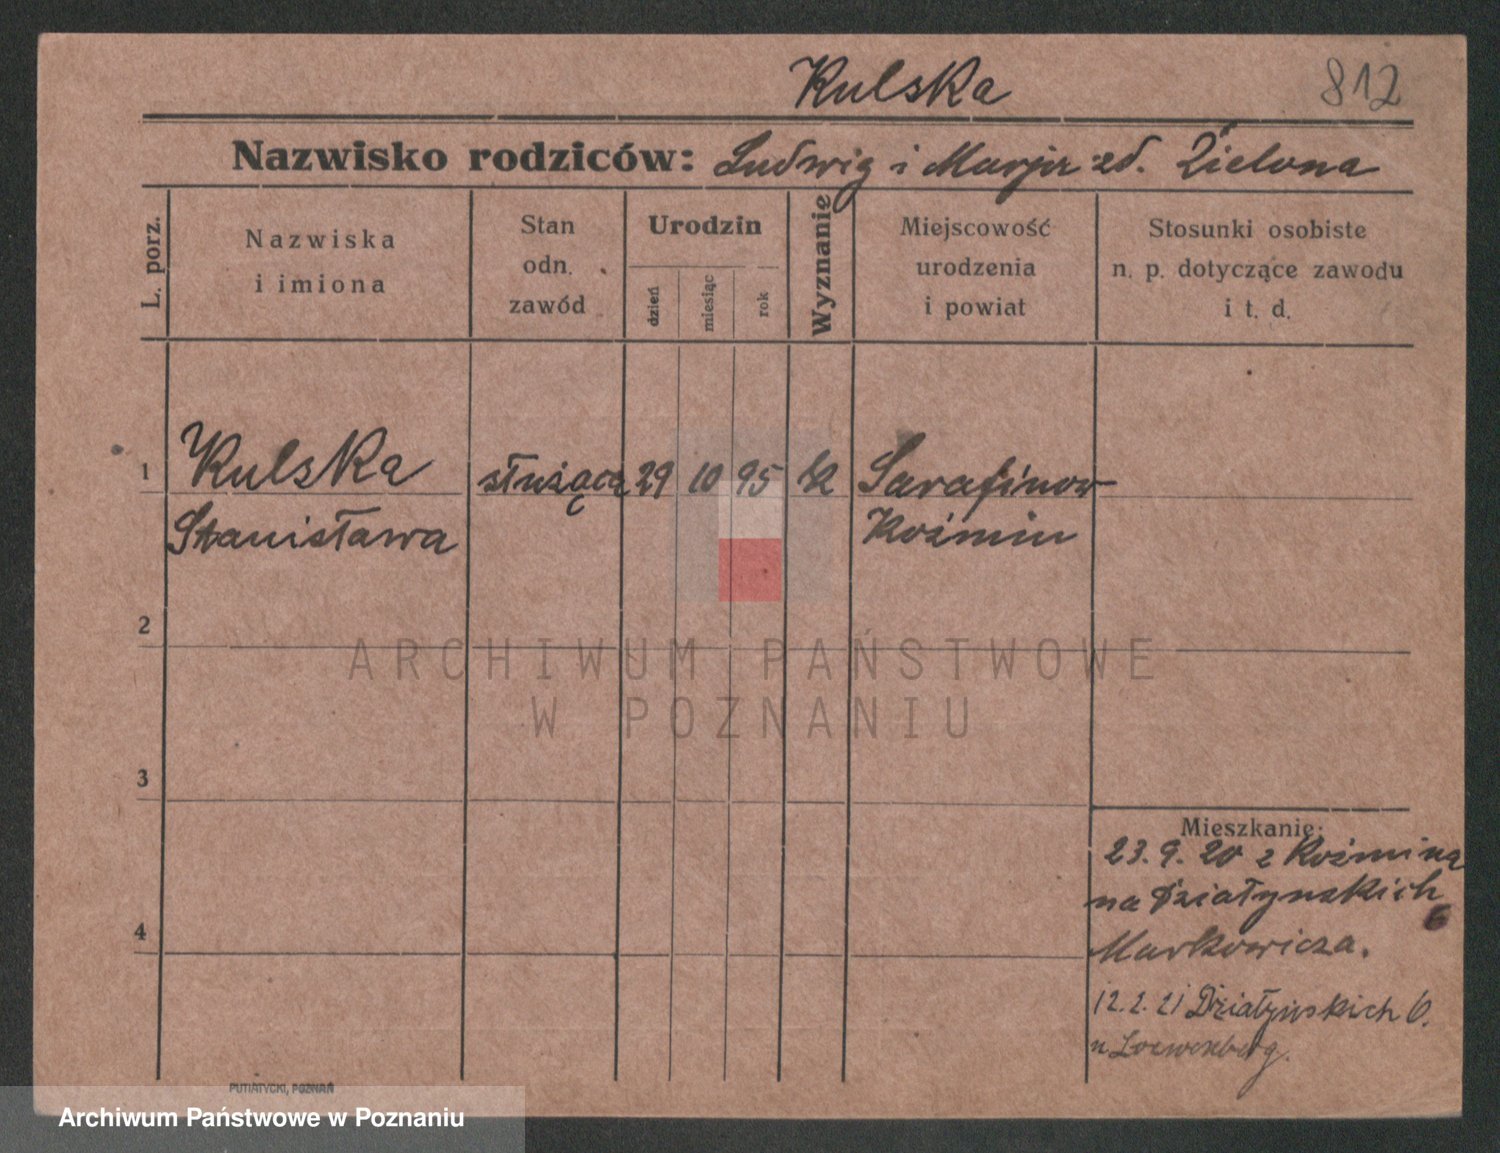 Kulska
812
Nazwisko rodziców: Ludwig i Marja zd. Zielona
L. porz.
Nazwiska
i imiona
Stan
odn.
zawód
Urodzin
dzień
miesiąc
rok
Wyznanie
Miejscowość
urodzenia
i powiat
Stosunki osobiste
n. p. dotyczące zawodu
i t. d.
1 Kulska służąca 29 10 95 k Sarafinow
Stanisława Koźmin
2
3
4
Mieszkanie:
23.9.20 z Koźmina
na Działynskich 6
Markowicza.
12.2.21 Działyńskich 6.
u Loewenberg.
PUTIATYCKI, POZNAŃ
ARCHIWUM PAŃSTWOWE
W POZNANIU
Archiwum Państwowe w Poznaniu